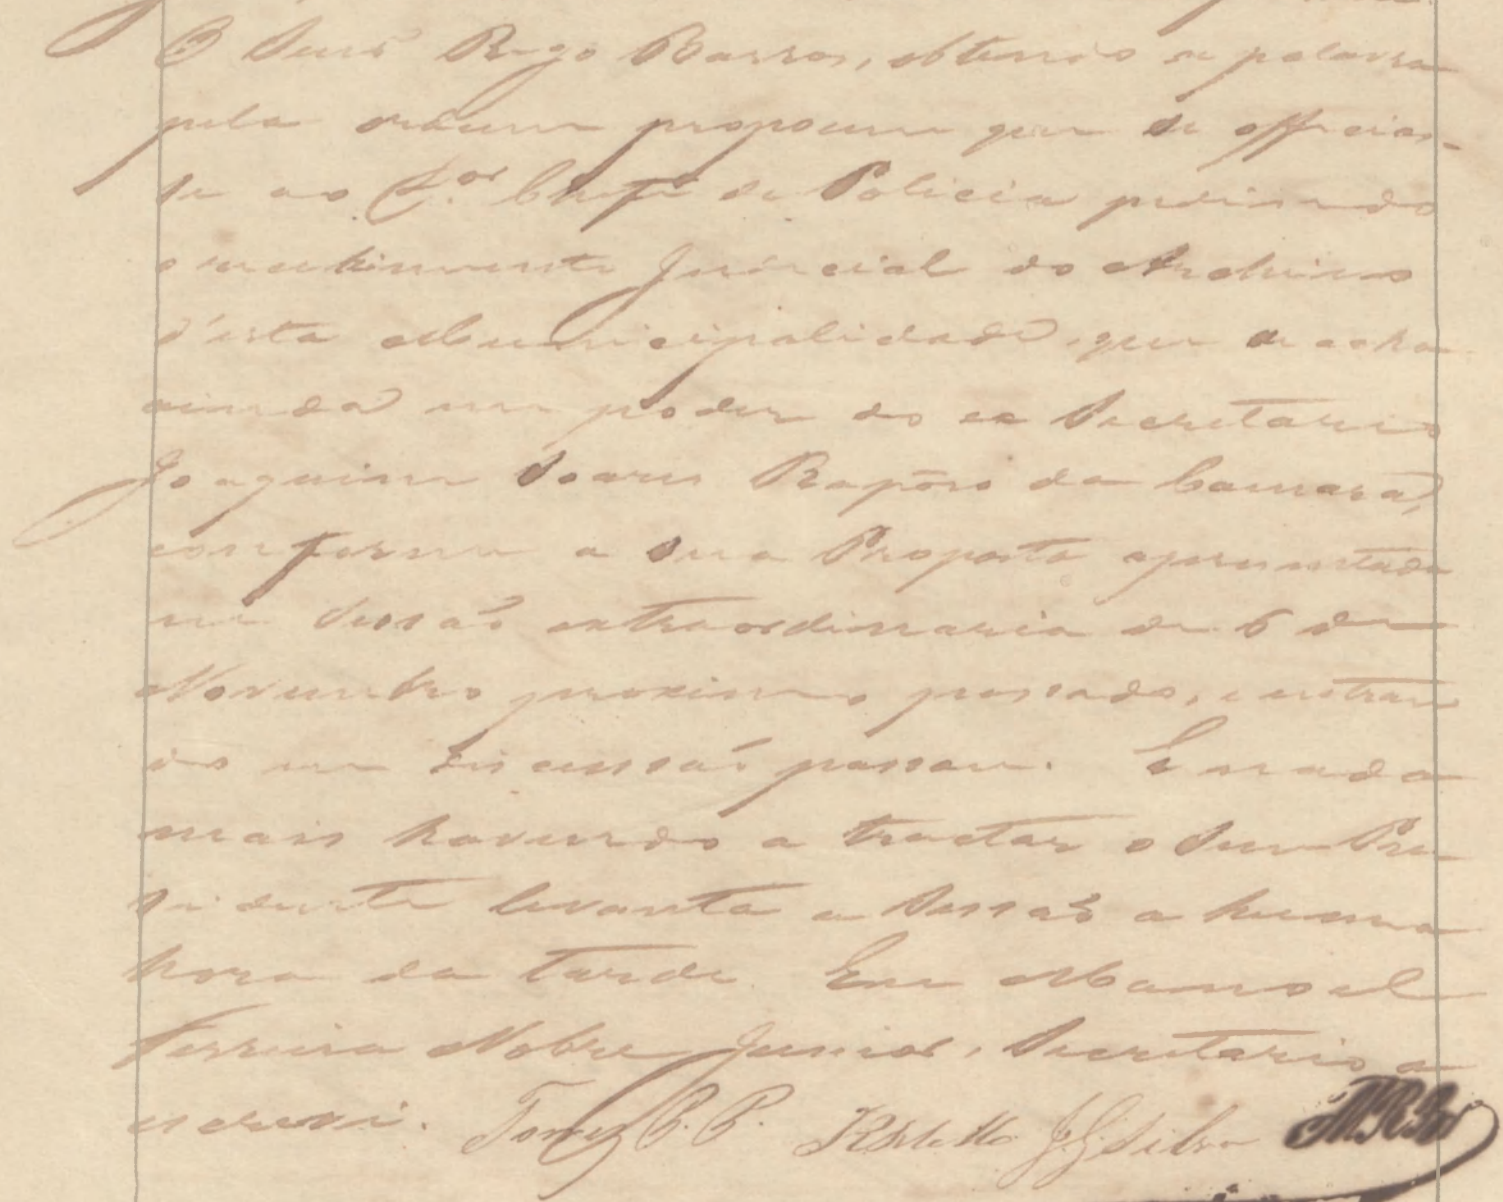 O Senr Rego Barros, obtendo a palavra
pela ordem propoem que se officias-
se ao Dor Chefe de Policia pedindo
o recebimento Judicial do Archivo
d'esta Municipalidade, que se acha
ainda em poder do ex Secretario
Joaquim Soares Rapôso da Camara,
conforme a sua Proposta apresentada
em Sessaõ extraordinaria de 6 de
Novembro proximo passado, e entran
do em discussaõ passou. E nada
mais havendo a tractar o Senr Pre
sidente levanta a Sessaõ a huma
hora da tarde. Eu Manoel
Ferreira Nobre Junior, Secretario a
escrevi. Torres P. P. J. G. Silva